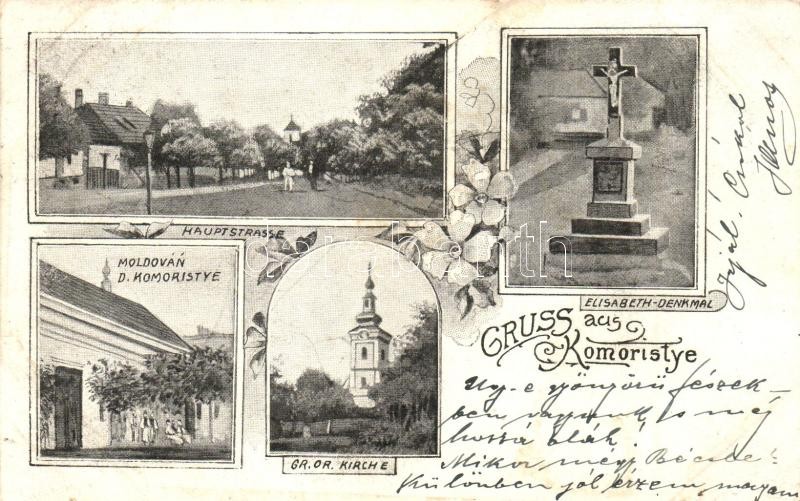 HAUPTSTRASSE
ELISABETH-DENKMAL
MOLDOVÁŃ
D. KOMORISTYE
GR. OR. KIRCHE
GRUSS aus
Komoristye
Ugy-e gyönyörü fészek-
ben vagyunk, s még
hozzá
Mikor mégy Bécsbe?
Különben jól érzem magam